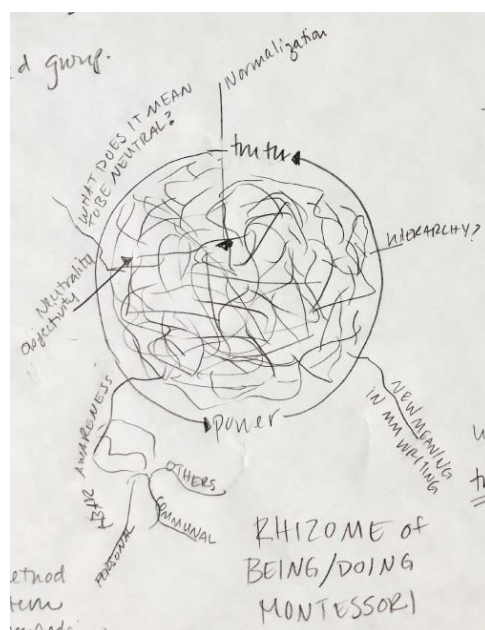 d group.
Normalization
WHAT DOES IT MEAN
TO BE NEUTRAL?
truth
HIERARCHY?
Neutrality
objectivity
power
NEW MEANING
IN MM WRITING
AWARENESS
OTHERS
COMMUNAL
PERSONAL
RHIZOME of
BEING/DOING
MONTESSORI